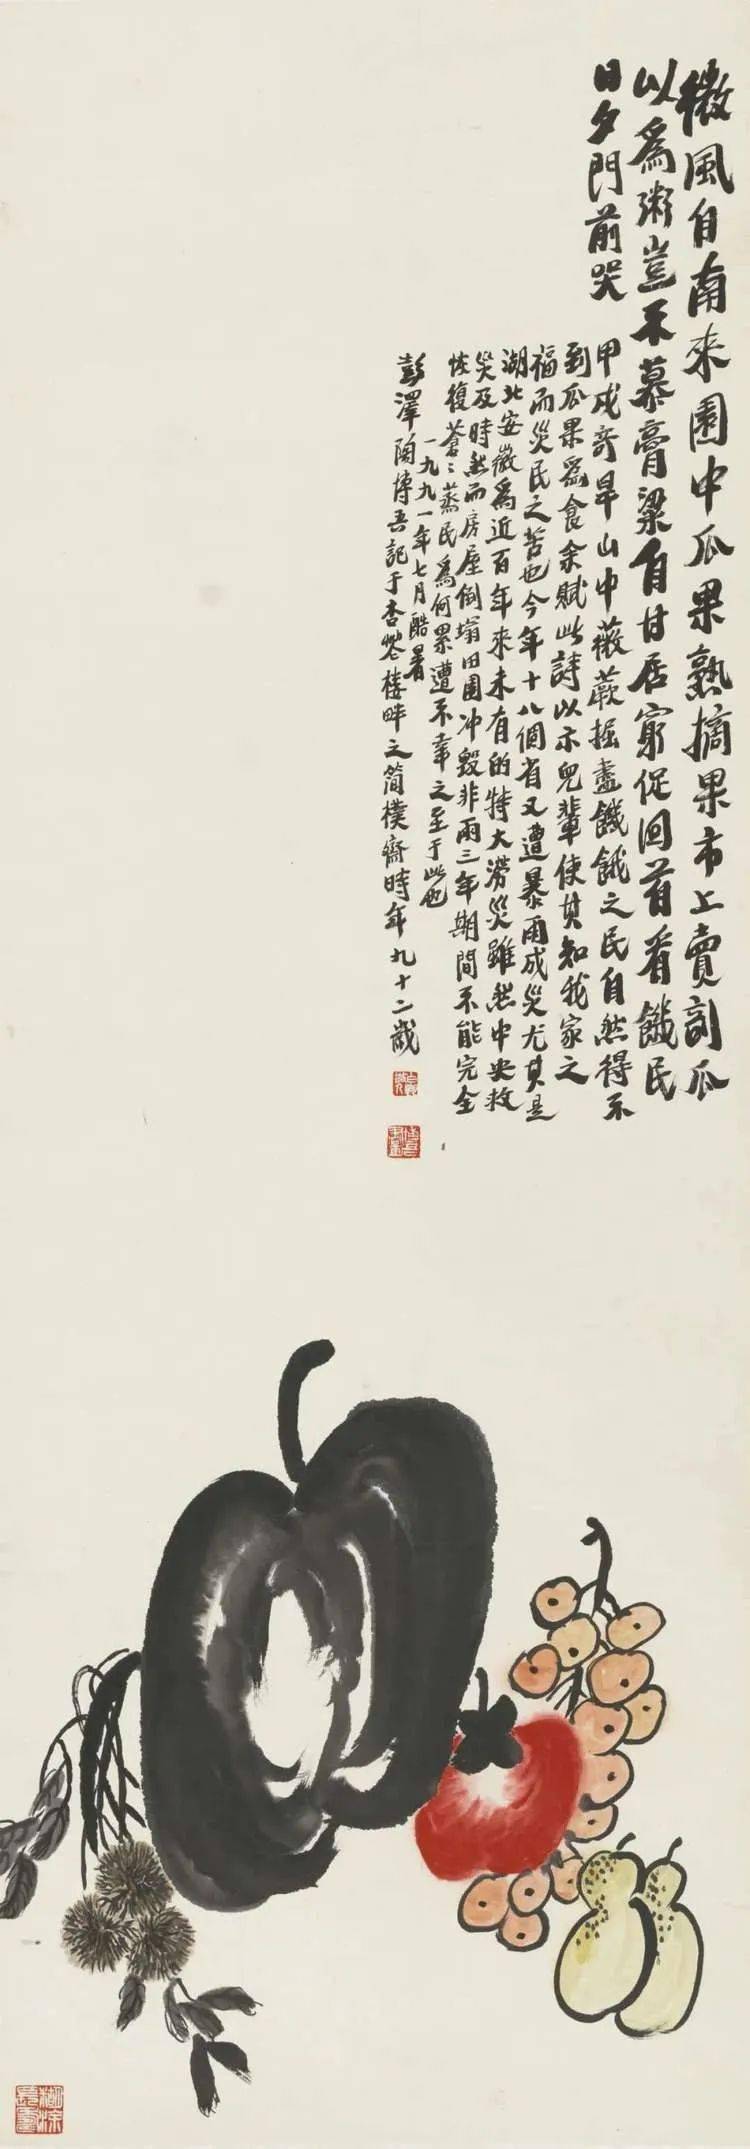 微風自南來園中瓜果熟摘果市上賣剖瓜
以為粥豈不慕膏粱自甘居窮促回首看饑民
日夕門前哭
甲戌奇旱山中薇蕨掘盡饑餓之民自然得不
到瓜果為食余賦此詩以示兒輩使其知我家之
福而災民之苦也今年十八個省又遭暴雨成災尤其是
湖北安徽為近百年來未有的特大澇災雖然中央救
災及時然而房屋倒塌田園冲毀非兩三年期間不能完全
恢復蒼〻蒸民為何累遭不幸之至于此也
一九九一年七月酷暑
彭澤陶博吾記于杏花樓畔之简樸齋時年九十二歲